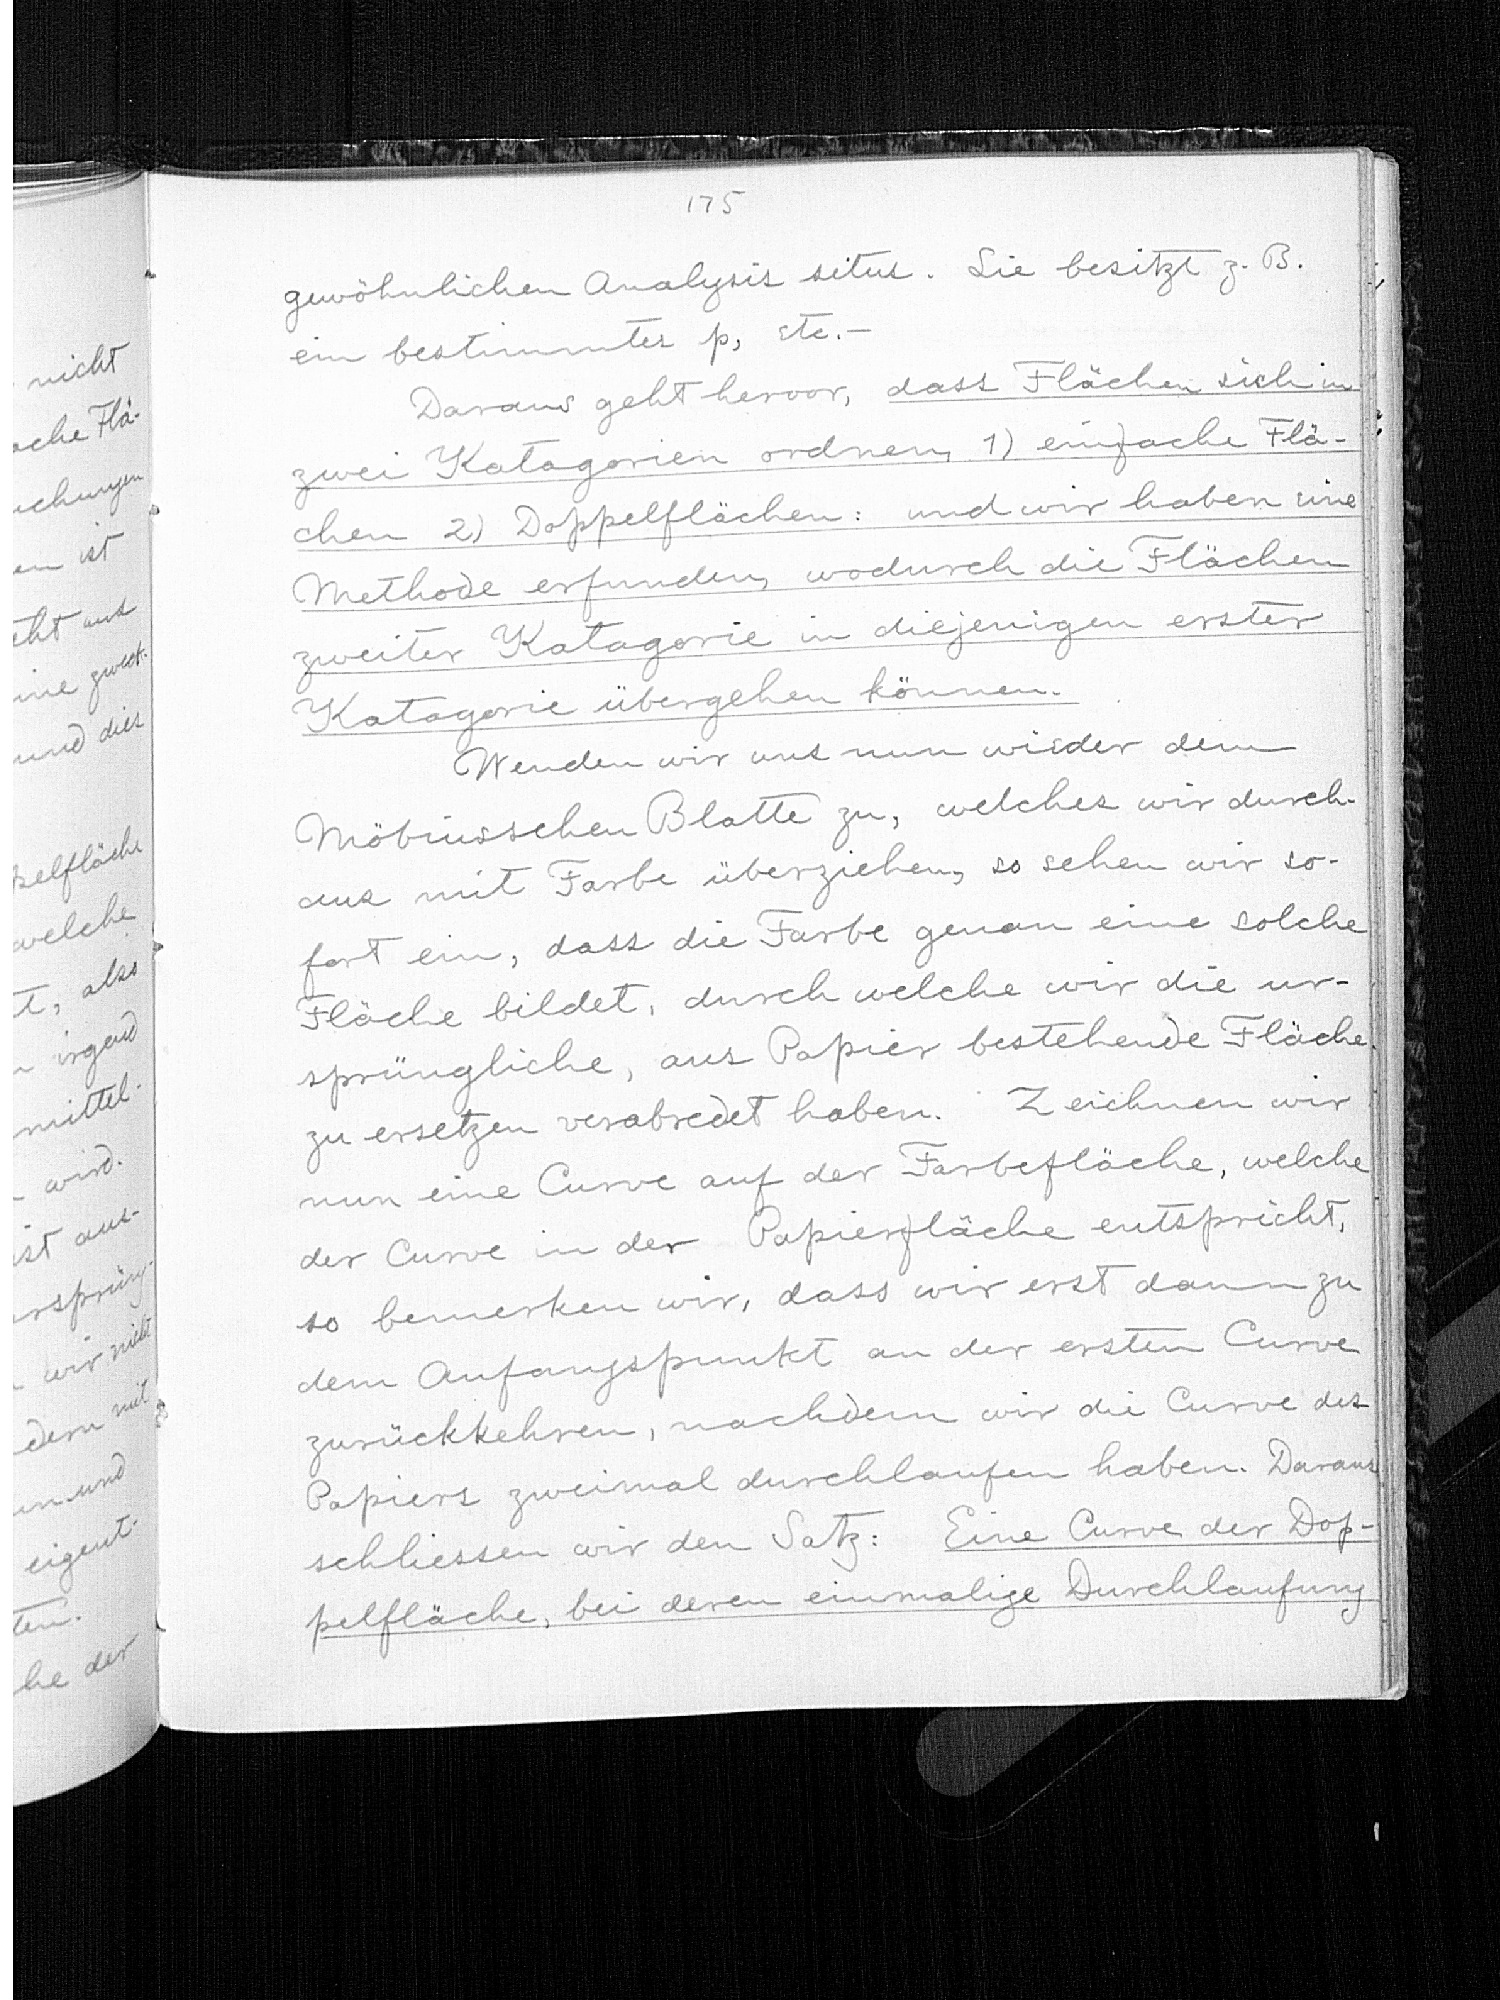 175
gewöhnlichen Analysis situs. Sie besitzt z. B.
ein bestimmtes p, etc.—
Daraus geht hervor, dass Flächen sich in
zwei Katagorien ordnen, 1) einfache Flä-
chen 2) Doppelflächen: und wir haben eine
Methode erfunden, wodurch die Flächen
zweiter Katagorie in diejenigen erster
Katagorie übergehen können.
Wenden wir uns nun wieder dem
Möbiusschen Blatte zu, welches wir durch-
aus mit Farbe überziehen, so sehen wir so-
fort ein, dass die Farbe genau eine solche
Fläche bildet, durch welche wir die ur-
sprüngliche, aus Papier bestehende Fläche
zu ersetzen verabredet haben. Zeichnen wir
nun eine Curve auf der Farbefläche, welche
der Curve in der Papierfläche entspricht,
so bemerken wir, dass wir erst dann zu
dem Anfangspunkt an der ersten Curve
zurückkehren, nachdem wir die Curve des
Papiers zweimal durchlaufen haben. Daraus
schliessen wir den Satz: Eine Curve der Dop-
pelfläche, bei deren einmalige Durchlaufung